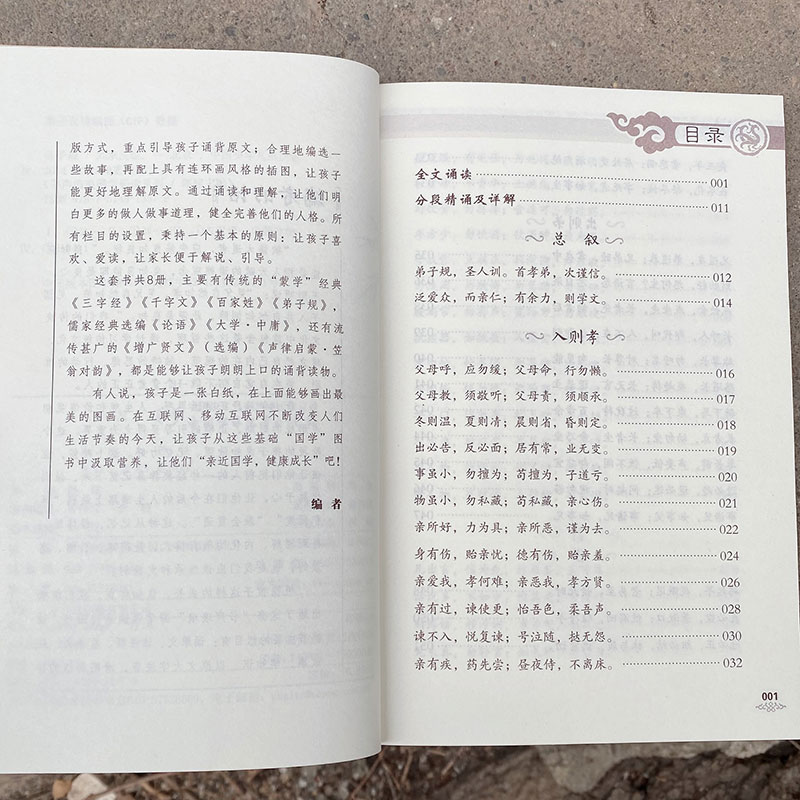 版方式，重点引导孩子诵背原文；合理地编选一
些故事，再配上具有连环画风格的插图，让孩子
能更好地理解原文。通过诵读和理解，让他们明
白更多的做人做事道理，健全完善他们的人格。所
有栏目的设置，秉持一个基本的原则：让孩子喜
欢、爱读，让家长便于解说、引导。
这套书共8册，主要有传统的“蒙学”经典
《三字经》《千字文》《百家姓》《弟子规》，
儒家经典选编《论语》《大学·中庸》，还有流
传甚广的《增广贤文》（选编）《声律启蒙·笠
翁对韵》，都是能够让孩子朗朗上口的诵背读物。
有人说，孩子是一张白纸，在上面能够画出最
美的图画。在互联网、移动互联网不断改变人们
生活节奏的今天，让孩子从这些基础“国学”图
书中汲取营养，让他们“亲近国学，健康成长”吧！
编 者
目录
全文诵读 001
分段精诵及详解 011
总 叙
弟子规，圣人训。首孝弟，次谨信。 012
泛爱众，而亲仁；有余力，则学文。 014
入则孝
父母呼，应勿缓；父母命，行勿懒。 016
父母教，须敬听；父母责，须顺承。 017
冬则温，夏则凊；晨则省，昏则定。 018
出必告，反必面；居有常，业无变。 019
事虽小，勿擅为；苟擅为，子道亏。 020
物虽小，勿私藏；苟私藏，亲心伤。 021
亲所好，力为具；亲所恶，谨为去。 022
身有伤，贻亲忧；德有伤，贻亲羞。 024
亲爱我，孝何难；亲恶我，孝方贤。 026
亲有过，谏使更；怡吾色，柔吾声。 028
谏不入，悦复谏；号泣随，挞无怨。 030
亲有疾，药先尝；昼夜侍，不离床。 032
001